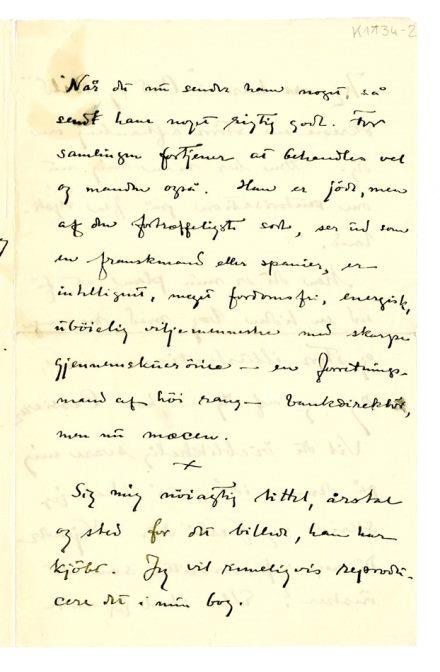 K 1734-2
Når du nu sender ham noget, så
send ham noget rigtig godt. For
samlingen fortjener at behandles vel
og manden også. Han er jøde, men
af den fortræffeligste sort, ser ud som
en franskmand eller spanier, er
intelligent, meget fordomsfri, energisk,
ubøielig viljemenneske med skarpe
gjennemskuerøine – en forretnings-
mand af høi rang – bankdirektør,
men nu mæcen.
+
Sig mig nøiagtig tittel, årstal
og sted for det billede, han har
kjøbt. Jeg vil rimeligvis reprodu-
cere det i min bog.